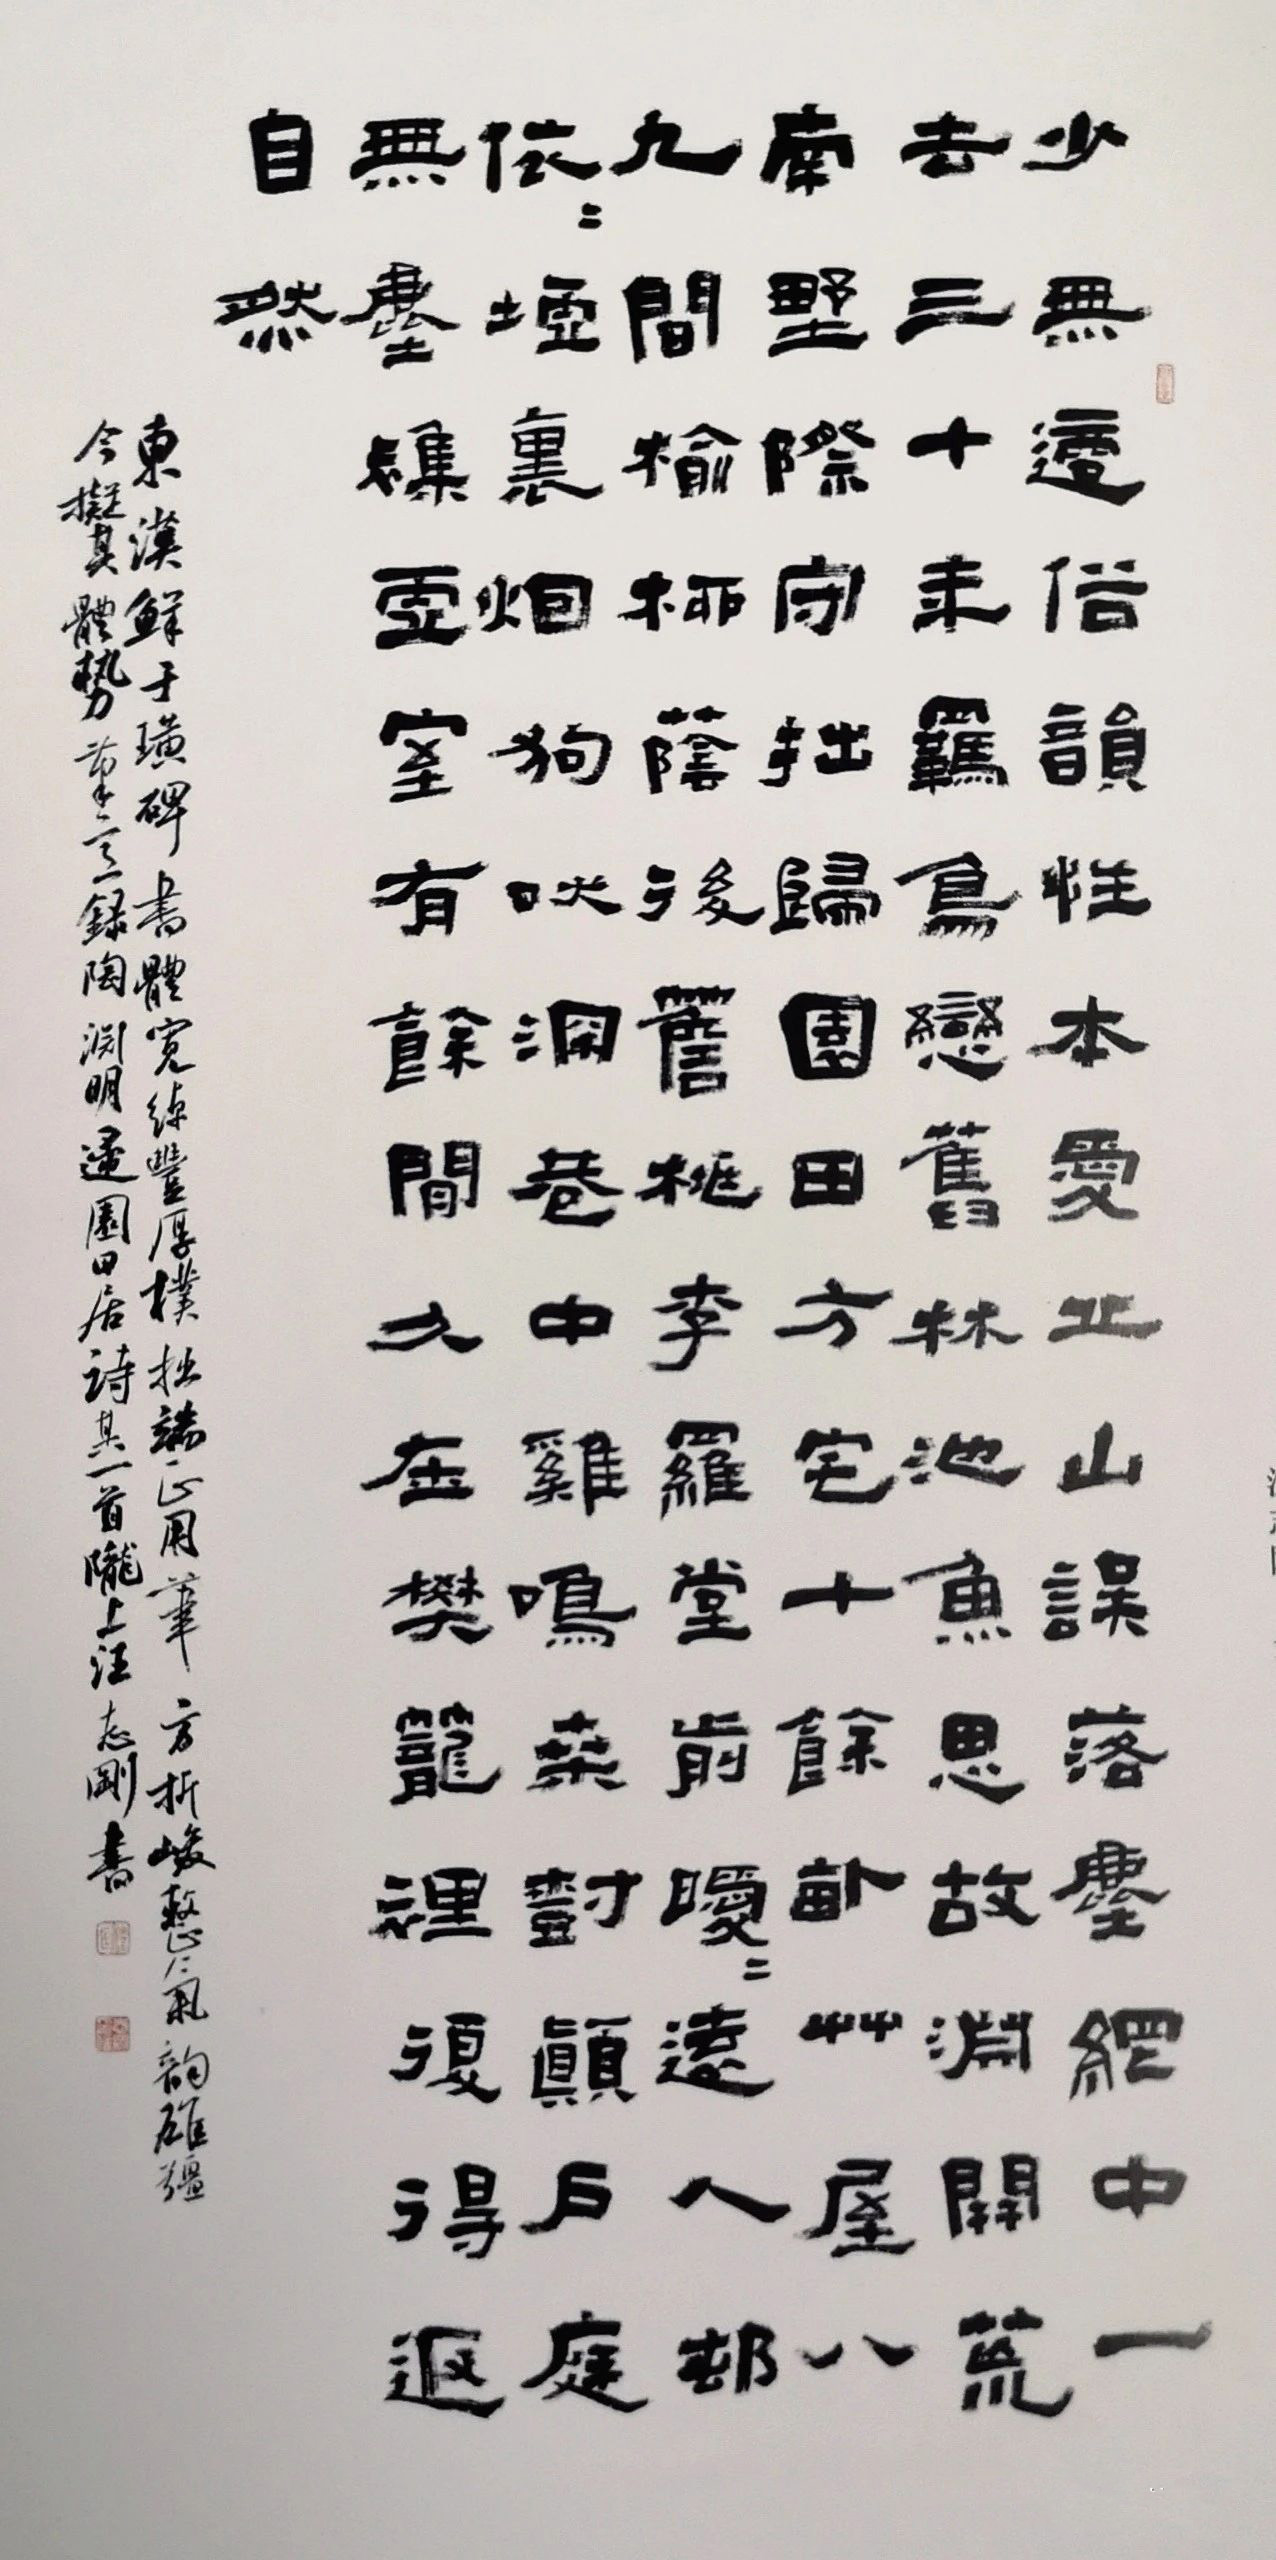 少無適俗韻性本愛丘山誤落塵網中一
去三十年羈鳥戀舊林池魚思故淵開荒
南野際守拙歸園田方宅十餘畝艸屋八
九間榆柳蔭後簷桃李羅堂前曖〻遠人邨
依〻墟裏烟狗吠深巷中雞鳴桑對顛戶庭
無塵雜虛室有餘閒久在樊籠裡復得返
自然
東漢鮮于璜碑書體寬綽豐厚樸拙端正用筆方折峻整氣韵雄強
今擬其體勢筆意錄陶淵明歸園田居詩其一首隴上汪志剛書